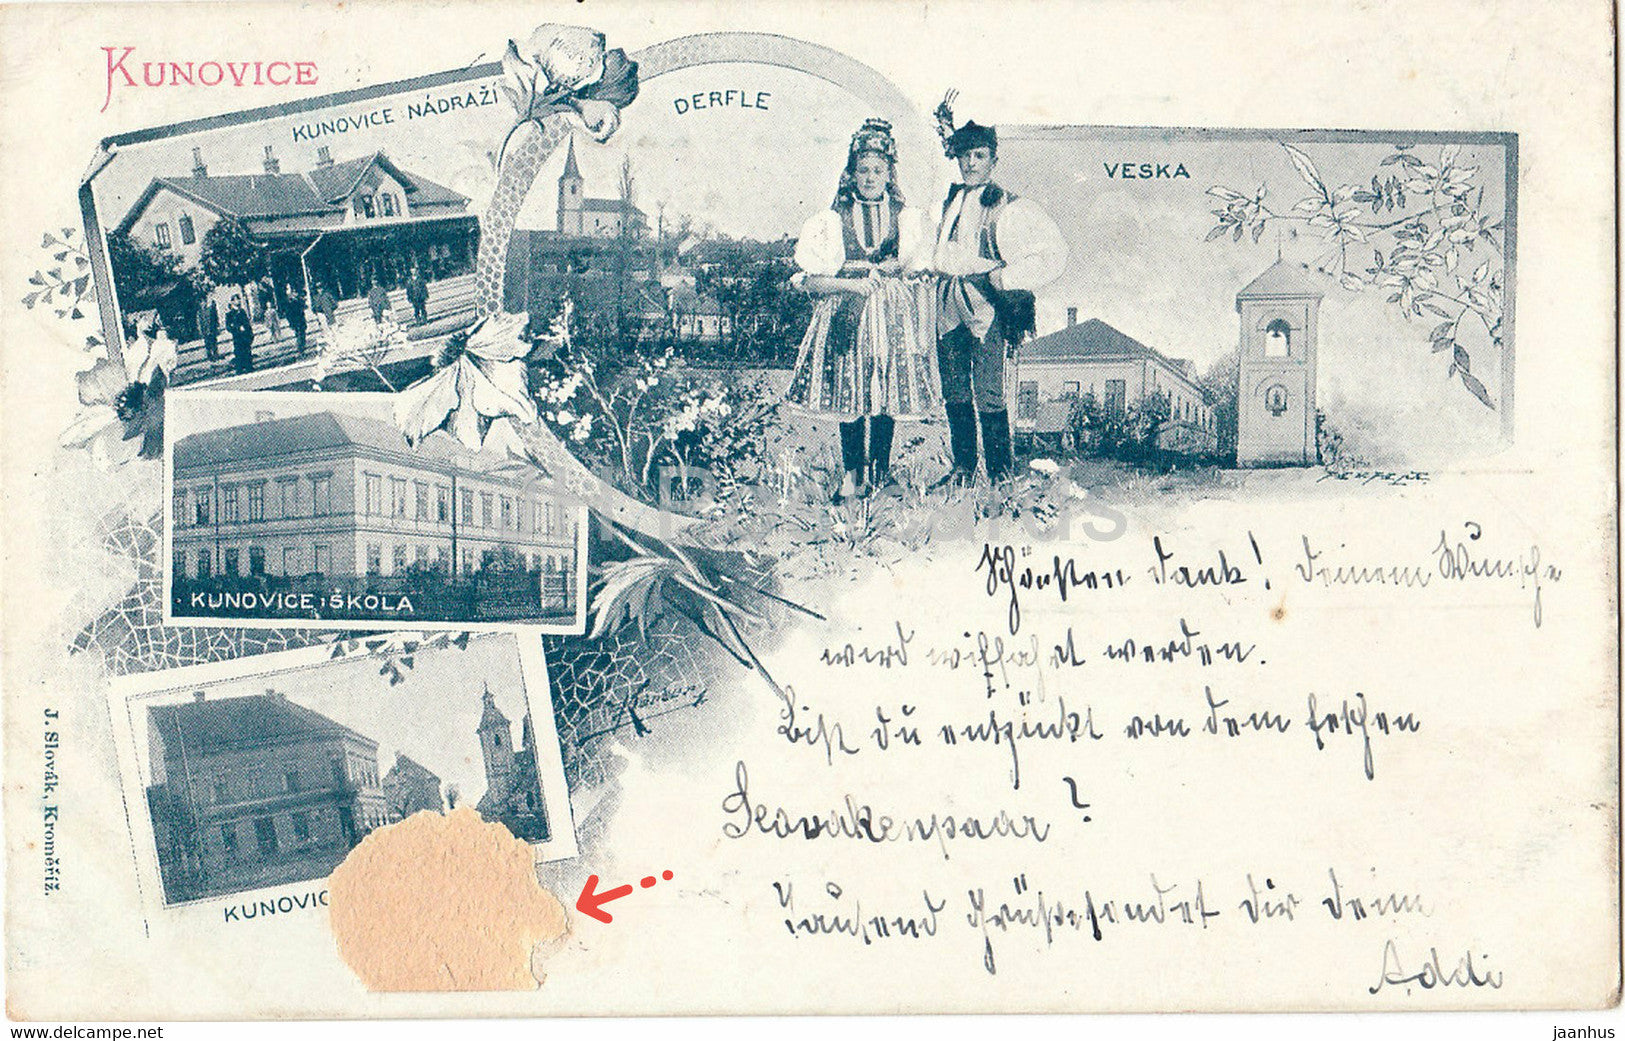 KUNOVICE
KUNOVICE NÁDRAŽÍ
DERFLE
VESKA
KUNOVICE, ŠKOLA
KUNOVIC
J. Slovák, Kroměříž.
H Postcards
Schönsten Dank! Deinem Wunsche
wird willfahrt werden.
Bist du entzückt von dem feschen
Slovakenpaar?
Tausend Grüße sendet dir deine
Addi
www.delcampe.net
jaanhus